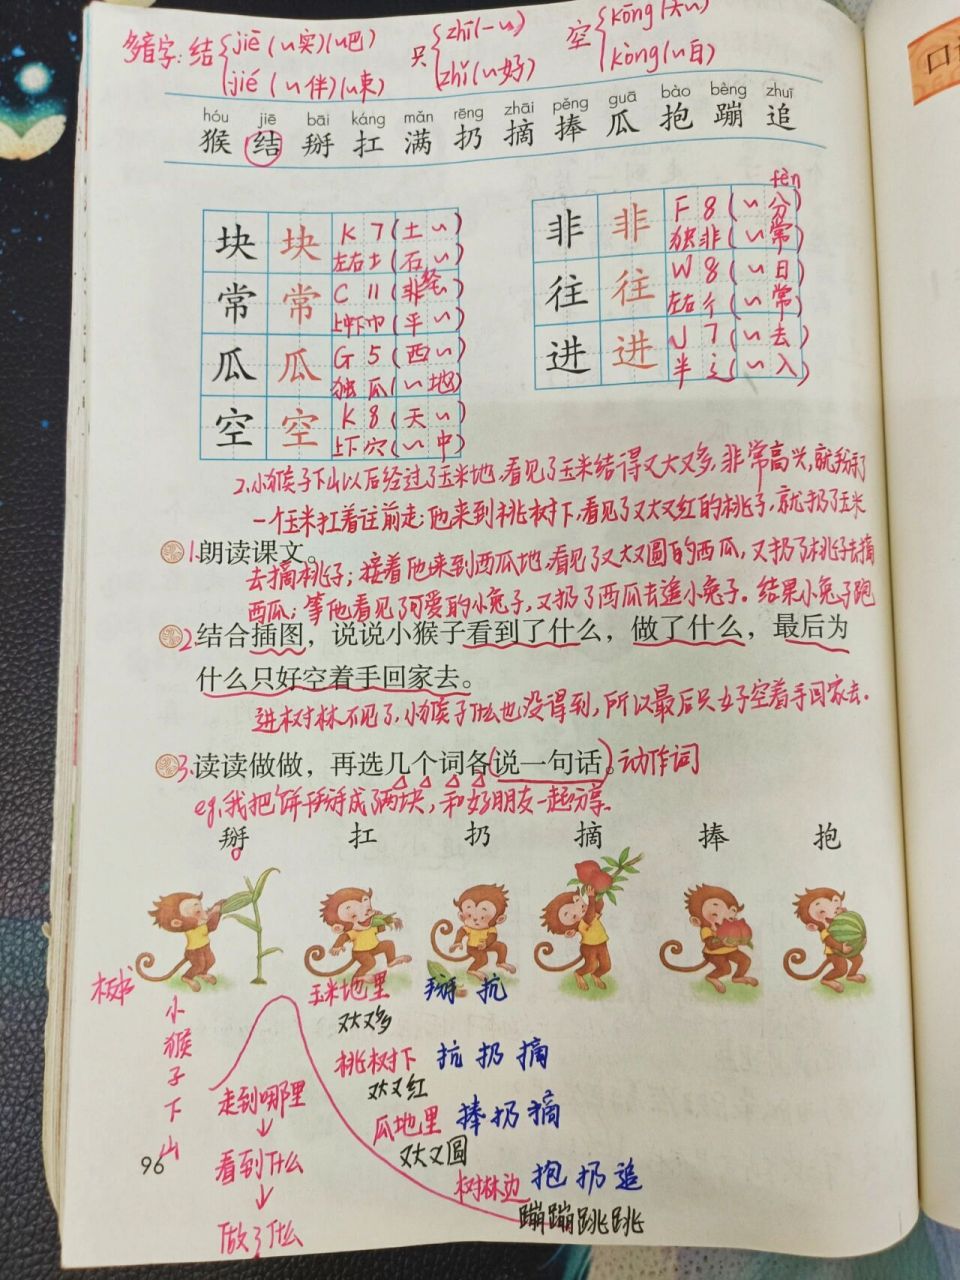 多音字:结{jiē(~实)(~巴) 只{zhī(一~) 空{kōng(天~)
jié(~伴)(~束) zhǐ(~好) kòng(~白)
hóu jiē bāi káng mǎn rēng zhāi pěng guā bào bèng zhuī
猴 结 掰 扛 满 扔 摘 捧 瓜 抱 蹦 追
块 块 K 7(土~)
左右 土(石~)
常 常 C 11(非~)
上中下 巾(平~)
瓜 瓜 G 5(西~)
独 瓜(~地)
空 空 K 8(天~)
上下 穴(~中)
fèn
非 非 F 8(~分)
独 非(~常)
往 往 W 8(~日)
左右 彳(~常)
进 进 J 7(~去)
半 辶(~入)
2.小猴子下山以后经过了玉米地,看见了玉米结得又大又多,非常高兴,就掰了
一个玉米扛着往前走;他来到桃树下,看见了又大又红的桃子,就扔了玉米
1.朗读课文。
去摘桃子;接着他来到西瓜地,看见了又大又圆的西瓜,又扔了桃子去摘
西瓜;等他看见了可爱的小兔子,又扔了西瓜去追小兔子。结果小兔子跑
2.结合插图,说说小猴子看到了什么,做了什么,最后为
什么只好空着手回家去。
进树林不见了,小猴子什么也没得到,所以最后只好空着手回家去.
3.读读做做,再选几个词各说一句话。动作词
eg.我把饼干掰成了两块,和好朋友一起分享.
掰 扛 扔 摘 捧 抱
板书
小猴子下山
走到哪里
↓
看到什么
↓
做了什么
玉米地里 掰 抗
又大又多
桃树下 抗 扔 摘
又大又红
瓜地里 捧 扔 摘
又大又圆
树林边 抱 扔 追
蹦蹦跳跳
96